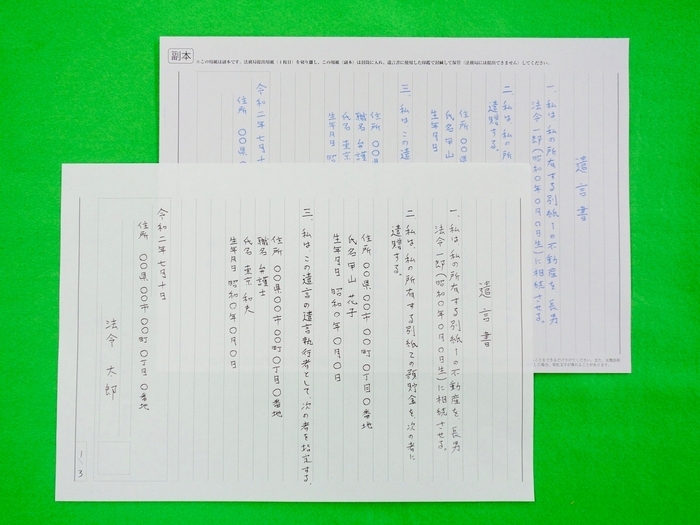 副本
※この用紙は副本です。法務局提出用紙（1枚目）を切り離し、この用紙（副本）は封筒に入れ、遺言書に使用した印鑑で封緘して保管（法務局には提出できません）してください。
遺言書
一、私は私の所有する別紙1の不動産を、長男
法令一郎（昭和〇年〇月〇日生）に相続させる。
二、私は、私の所
遺贈する。
住所 〇〇県
氏名 甲山
生年月日
三、私は この遺
住所 〇〇県
職名 弁護
氏名 東京
生年月日 昭
令和二年七月十
住所 〇〇県
遺言書
一、私は私の所有する別紙1の不動産を、長男
法令一郎（昭和〇年〇月〇日生）に相続させる。
二、私は、私の所有する別紙2の預貯金を、次の者に
遺贈する。
住所 〇〇県〇〇市〇〇町〇丁目〇番地
氏名 甲山 花子
生年月日 昭和〇年〇月〇日
三、私は この遺言の遺言執行者として、次の者を指定する。
住所 〇〇県〇〇市〇〇町〇丁目〇番地
職名 弁護士
氏名 東京 和夫
生年月日 昭和〇年〇月〇日
令和二年七月十日
住所 〇〇県〇〇市〇〇町〇丁目〇番地
法令 太郎
1/3